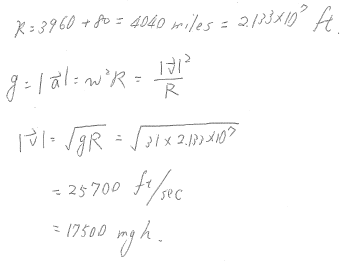 R = 3960 + 80 = 4040 miles = 2.133 × 10⁷ ft.
g = |a⃗| = w²R = |v⃗|² / R
|v⃗| = √gR = √31 × 2.133 × 10⁷
= 25700 ft/sec
= 17500 mph.